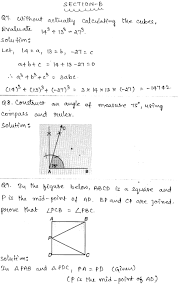 SECTION-B
Q7. Without actually calculating the cubes.
Evaluate 14³ + 13³ - 27³.
Solution:
Let, 14 = a, 13 = b, -27 = c
a+b+c = 14+13-27=0
∴ a³+b³+c³ = 3abc
(14)³ + (13)³ + (-27)³ = 3×14×13×(-27) = -14742
Q8. Construct an angle of measure 75°, using
compass and ruler.
Solution:
Q9. In the figure below. ABCD is a square and
P is the mid-point of AD. BP and CP are joined.
prove that ∠PCB = ∠PBC.
A B
P
D C
Solution:
In △PAB and △PDC, PA = PD (Given)
(P is the mid-point of AD)